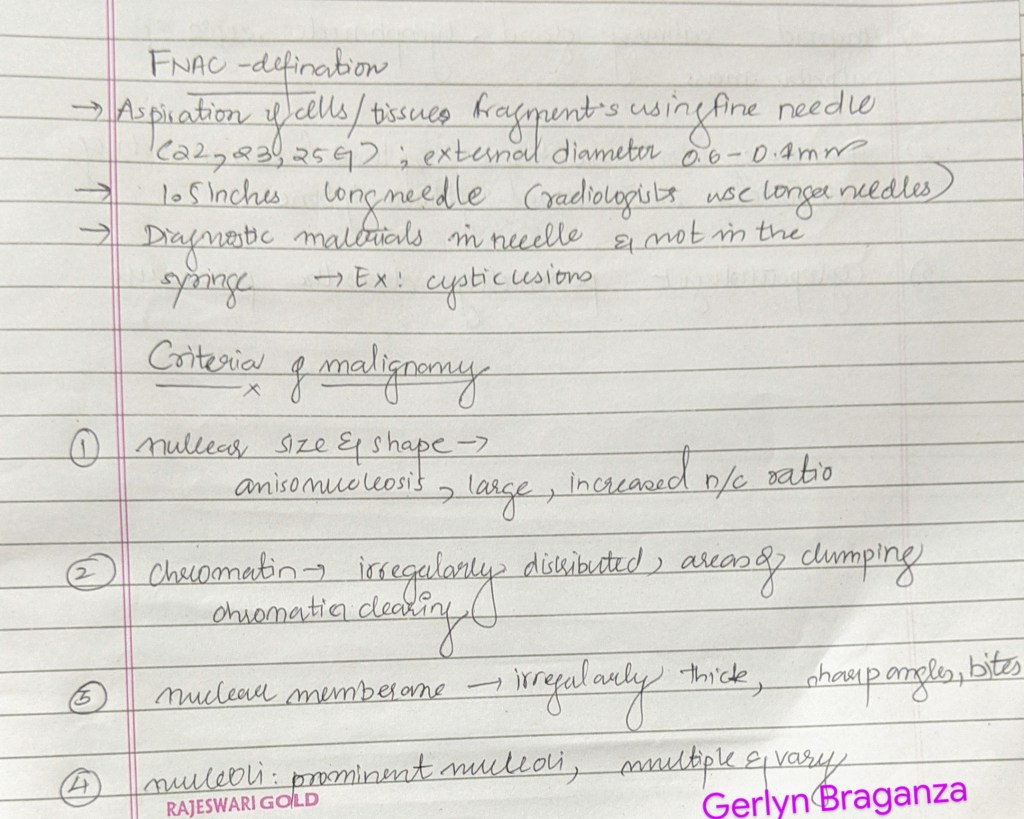 FNAC - defination
→ Aspiration of cells / tissues fragment's using fine needle
(22, 23, 25G) ; external diameter 0.6 - 0.4mm
→ 1.5 Inches long needle (radiologists use longer needles)
→ Diagnostic materials in needle & not in the
syringe → Ex: cystic lesions
Criteria of malignomy
① nullear size & shape →
anisonucleosis, large, increased n/c ratio
② Chromatin → irregularly distributed, areas of clumping
chromatin clearing
③ nuclear memberane → irregularly thick, sharp angles, bites
④ nucleoli: prominent nucleoli, multiple & vary
RAJESWARI GOLD
Gerlyn Braganza